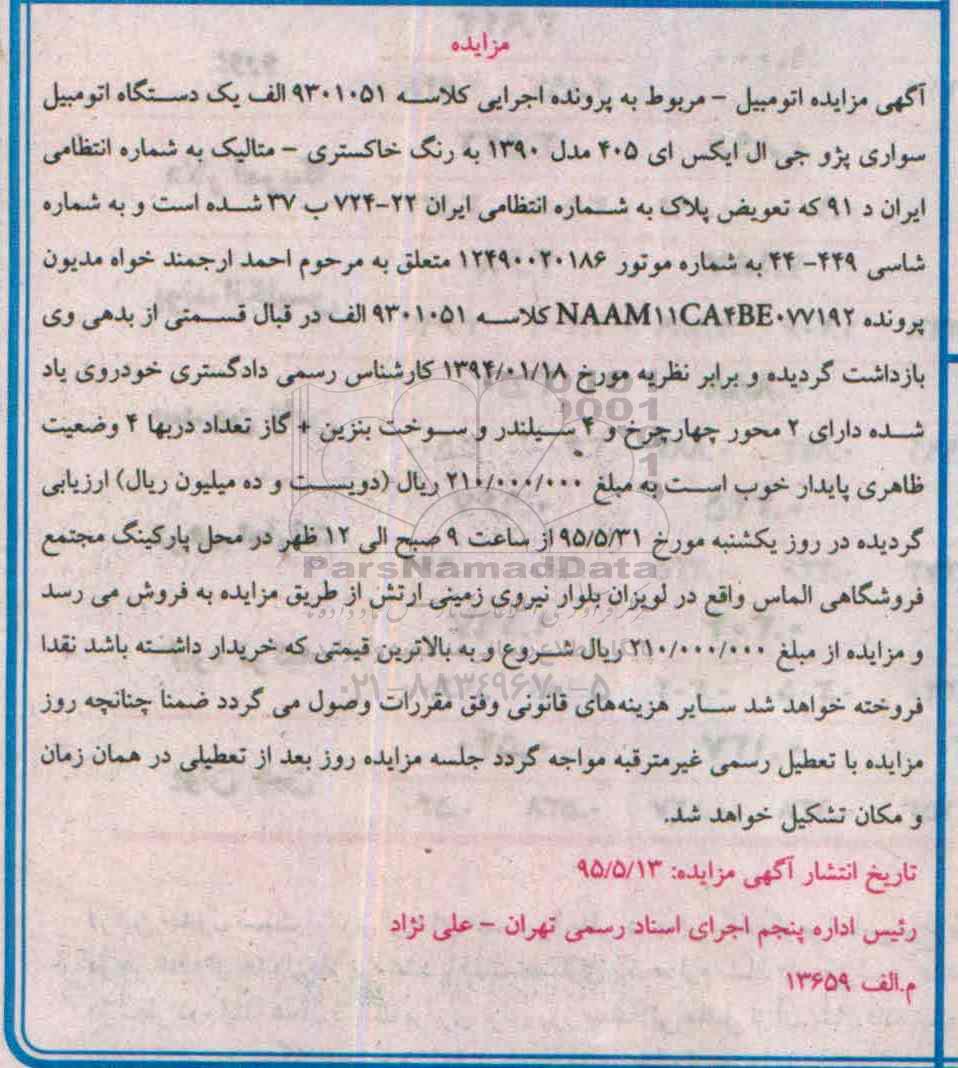 مزایده
آگهی مزایده اتومبیل – مربوط به پرونده اجرایی کلاسه ۹۳۰۱۰۵۱ الف یک دستگاه اتومبیل
سواری پژو جی ال ایکس ای ۴۰۵ مدل ۱۳۹۰ به رنگ خاکستری – متالیک به شماره انتظامی
ایران د ۹۱ که تعویض پلاک به شماره انتظامی ایران ۲۲-۷۲۴ ب ۳۷ شده است و به شماره
شاسی ۴۴۹- ۴۴ به شماره موتور ۱۲۴۹۰۰۲۰۱۸۶ متعلق به مرحوم احمد ارجمند خواه مدیون
پرونده NAAM۱۱CA۴BE۰۷۷۱۹۲ کلاسه ۹۳۰۱۰۵۱ الف در قبال قسمتی از بدهی وی
بازداشت گردیده و برابر نظریه مورخ ۱۳۹۴/۰۱/۱۸ کارشناس رسمی دادگستری خودروی یاد
شده دارای ۲ محور چهارچرخ و ۴ سیلندر و سوخت بنزین + گاز تعداد دربها ۴ وضعیت
ظاهری پایدار خوب است به مبلغ ۲۱۰/۰۰۰/۰۰۰ ریال (دویست و ده میلیون ریال) ارزیابی
گردیده در روز یکشنبه مورخ ۹۵/۵/۳۱ از ساعت ۹ صبح الی ۱۲ ظهر در محل پارکینگ مجتمع
فروشگاهی الماس واقع در لویزان بلوار نیروی زمینی ارتش از طریق مزایده به فروش می رسد
و مزایده از مبلغ ۲۱۰/۰۰۰/۰۰۰ ریال شروع و به بالاترین قیمتی که خریدار داشته باشد نقدا
فروخته خواهد شد سایر هزینه‌های قانونی وفق مقررات وصول می گردد ضمنا چنانچه روز
مزایده با تعطیل رسمی غیرمترقبه مواجه گردد جلسه مزایده روز بعد از تعطیلی در همان زمان
و مکان تشکیل خواهد شد.
تاریخ انتشار آگهی مزایده: ۹۵/۵/۱۳
رئیس اداره پنجم اجرای اسناد رسمی تهران – علی نژاد
م.الف ۱۳۶۵۹
ParsNamadData
۰۲۱-۸۸۳۴۹۶۷۰-۵